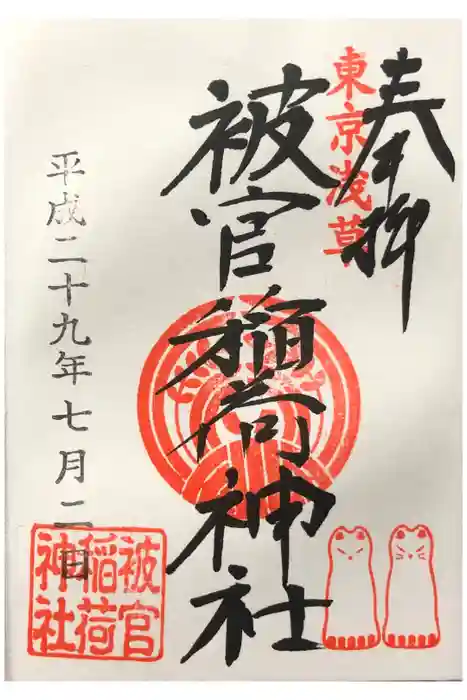 奉拝
東京浅草
被官稲荷神社
平成二十九年七月二日
被官
稲荷
神社